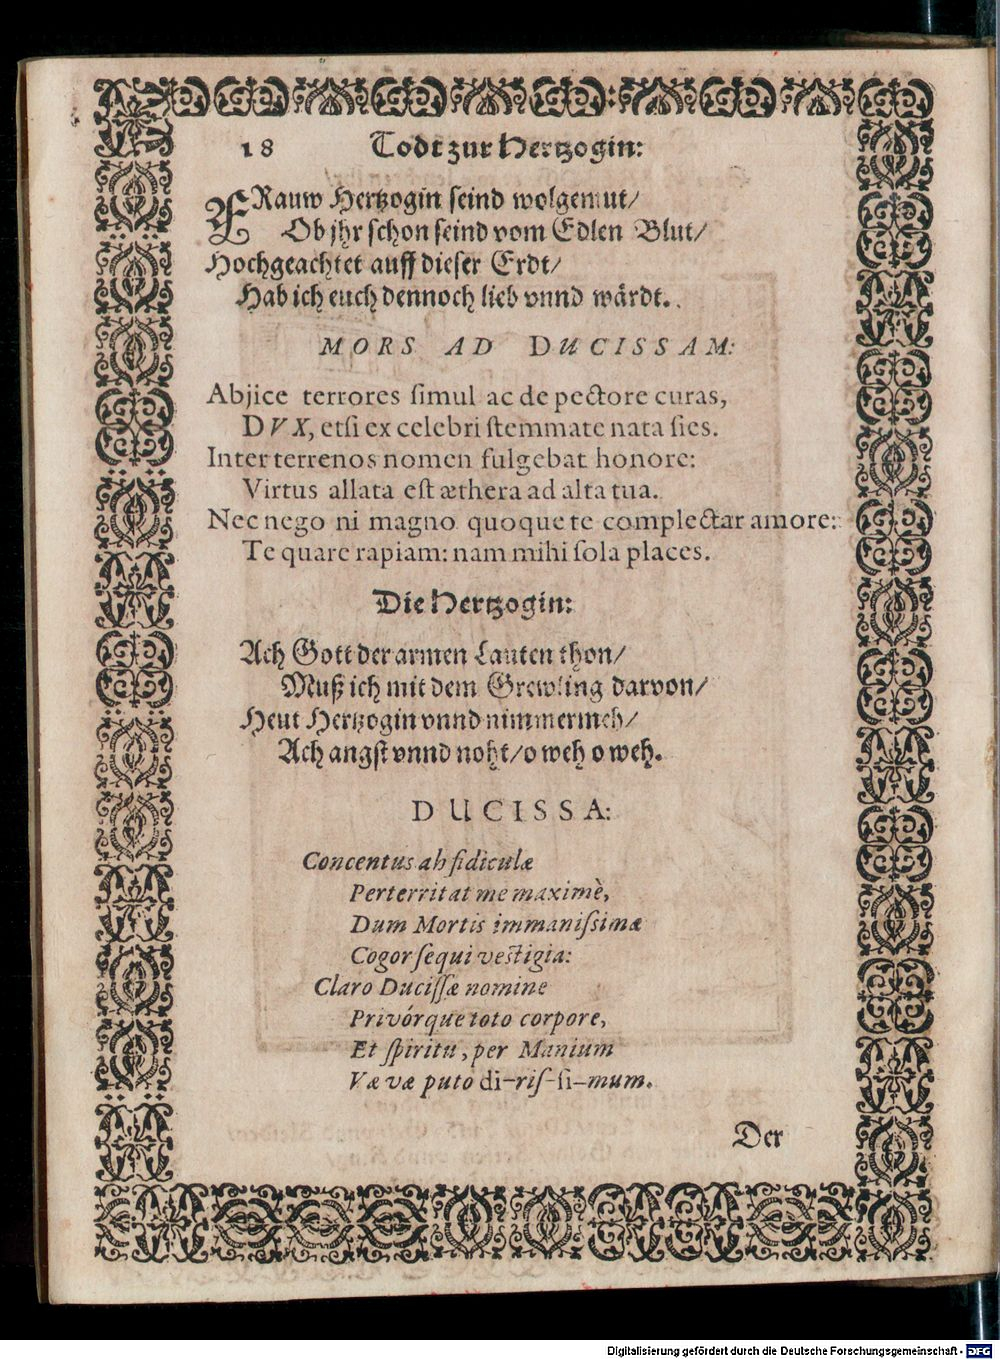 18 Todt zur Hertzogin:
FRauw Hertzogin seind wolgemut/
Ob jhr schon seind vom Edlen Blut/
Hochgeachtet auff dieser Erdt/
Hab ich euch dennoch lieb vnnd wärdt.
MORS AD DUCISSAM:
Abjice terrores simul ac de pectore curas,
DVX, etsi ex celebri stemmate nata sies.
Inter terrenos nomen fulgebat honore:
Virtus allata est æthera ad alta tua.
Nec nego ni magno quoque te complectar amore:
Te quare rapiam: nam mihi sola places.
Die Hertzogin:
Ach Gott der armen Lauten thon/
Muß ich mit dem Grewling darvon/
Heut Hertzogin vnnd nimmermeh/
Ach angst vnnd noht/ o weh o weh.
DUCISSA:
Concentus ah fidiculæ
Perterritat me maximè,
Dum Mortis immanissimæ
Cogor sequi vestigia:
Claro Ducissæ nomine
Privórque toto corpore,
Et spiritu, per Manium
Væ væ puto di-ris-si-mum.
Der
Digitalisierung gefördert durch die Deutsche Forschungsgemeinschaft - DFG